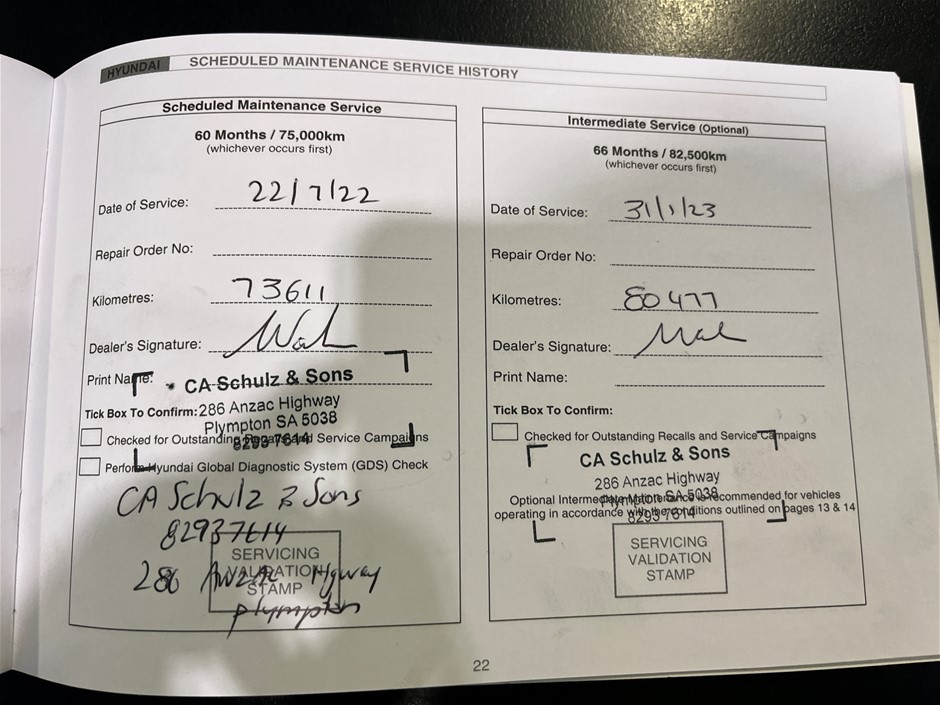 HYUNDAI SCHEDULED MAINTENANCE SERVICE HISTORY
Scheduled Maintenance Service
60 Months / 75,000km
(whichever occurs first)
Date of Service: 22/7/22
Repair Order No:
Kilometres: 73611
Dealer's Signature:
Print Name:
CA Schulz & Sons
Tick Box To Confirm: 286 Anzac Highway
Plympton SA 5038
Checked for Outstanding Recalls and Service Campaigns
8293 7614
Perform Hyundai Global Diagnostic System (GDS) Check
CA Schulz & Sons
82937614
SERVICING
VALIDATION
STAMP
286 Anzac Hgway
Plympton
Intermediate Service (Optional)
66 Months / 82,500km
(whichever occurs first)
Date of Service: 31/1/23
Repair Order No:
Kilometres: 80477
Dealer's Signature:
Print Name:
Tick Box To Confirm:
Checked for Outstanding Recalls and Service Campaigns
CA Schulz & Sons
286 Anzac Highway
Plympton SA 5038
8293 7614
Optional Intermediate Maintenance is recommended for vehicles
operating in accordance with the conditions outlined on pages 13 & 14
SERVICING
VALIDATION
STAMP
22